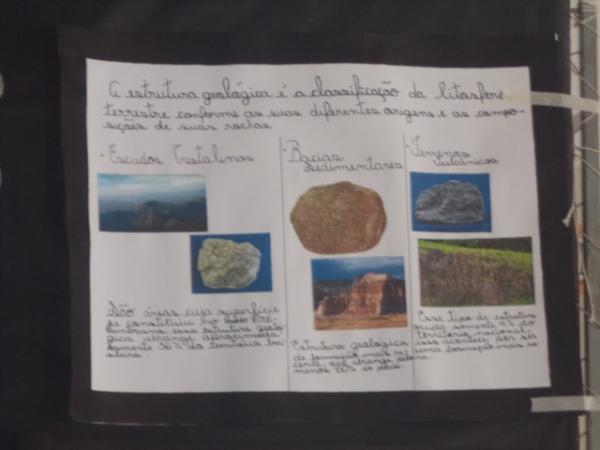 A estrutura geológica é a classificação da litosfera
terrestre conforme as suas diferentes origens e as compo-
sições de suas rochas
· Escudos Cristalinos
São áreas cuja superfície
se constituiu no Pré-
cambriano essa estrutura geoló-
gica abrange aproximada
mente 36% do território bra
sileiro
· Bacias
Sedimentares
Estrutura geológica
de formação mais re
cente, que abrange pelo
menos do país
· Terrenos
Vulcânicos
Esse tipo de estrutura
ocupa somente do
território nacional,
isso acontece por ser
uma formação mais